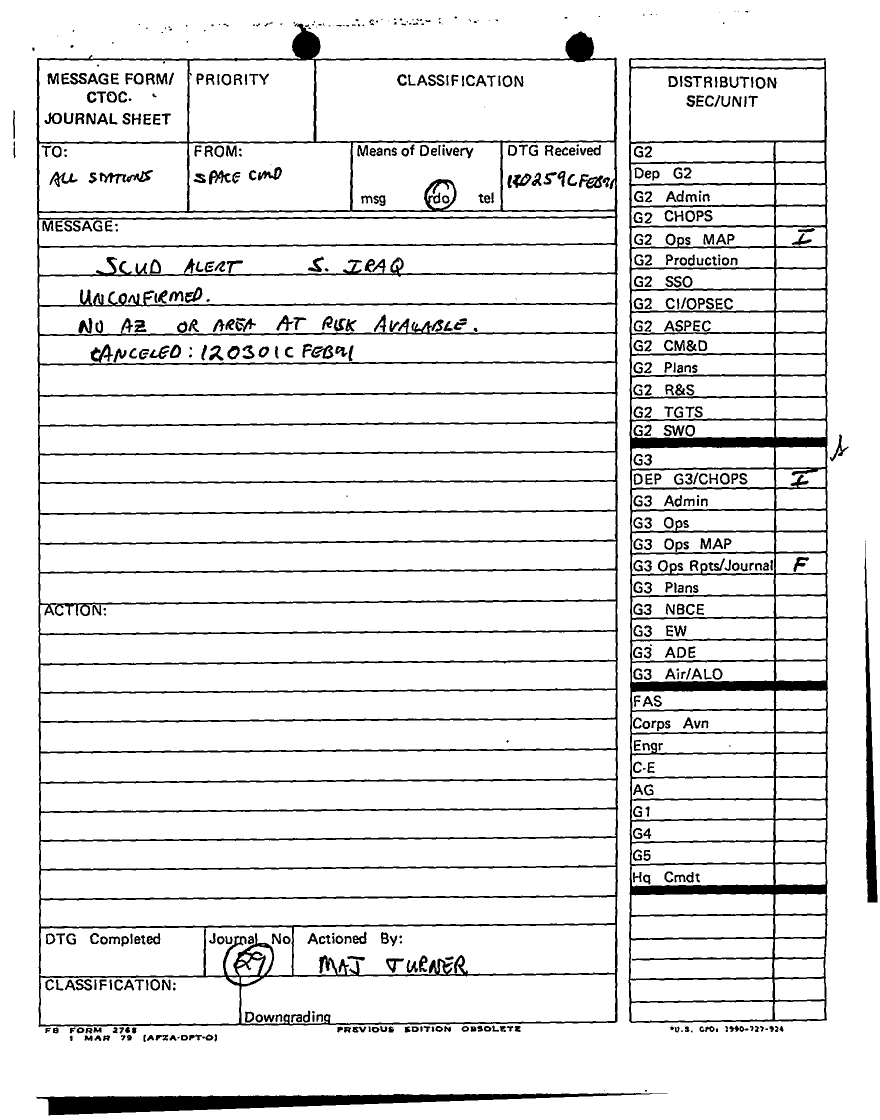 MESSAGE FORM/
CTOC.
JOURNAL SHEET
PRIORITY
CLASSIFICATION
TO:
ALL STATIONS
FROM:
SPACE CMD
Means of Delivery
msg rdo tel
DTG Received
MESSAGE:
SCUD ALERT S. IRAQ
UNCONFIRMED.
NO AZ OR AREA AT RISK AVAILABLE.
CANCELED: 120301C FEB91
ACTION:
DTG Completed
Journal No
29
Actioned By:
MAJ TURNER
CLASSIFICATION:
Downgrading
FB FORM 2768
1 MAR 79 (AFZA-DPT-O)
PREVIOUS EDITION OBSOLETE
DISTRIBUTION
SEC/UNIT
G2
Dep G2
G2 Admin
G2 CHOPS
G2 Ops MAP I
G2 Production
G2 SSO
G2 CI/OPSEC
G2 ASPEC
G2 CM&D
G2 Plans
G2 R&S
G2 TGTS
G2 SWO
G3
DEP G3/CHOPS I
G3 Admin
G3 Ops
G3 Ops MAP
G3 Ops Rpts/Journal F
G3 Plans
G3 NBCE
G3 EW
G3 ADE
G3 Air/ALO
FAS
Corps Avn
Engr
C-E
AG
G1
G4
G5
Hq Cmdt
*U.S. GPO: 1990-727-924